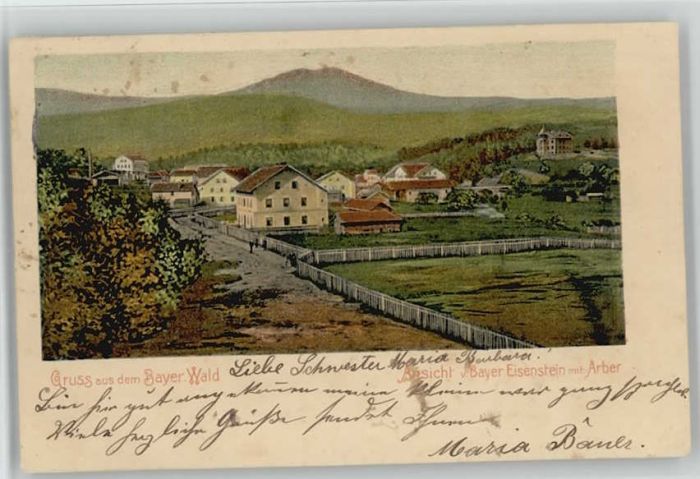 Liebe Schwester Maria Barbara!
Gruss aus dem Bayer. Wald
Ansicht v. Bayer. Eisenstein mit Arber
Bin hir gut angekomen meine kleinen war ganz
Viele herzliche Grüße sendet Ihnen
Maria Bauer.